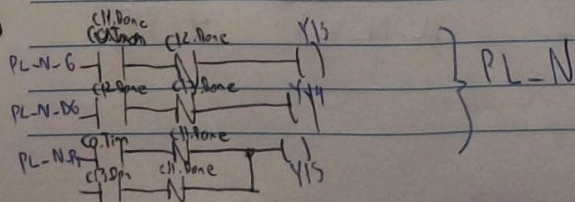 C11.Done
C2.Done Y13
PL_N_G ( )
C12.Done C13.Done
PL_N_DG ( ) Y14
C11.Done
PL_N_R ( ) Y15
C13.Dn C11.Done
PL_N